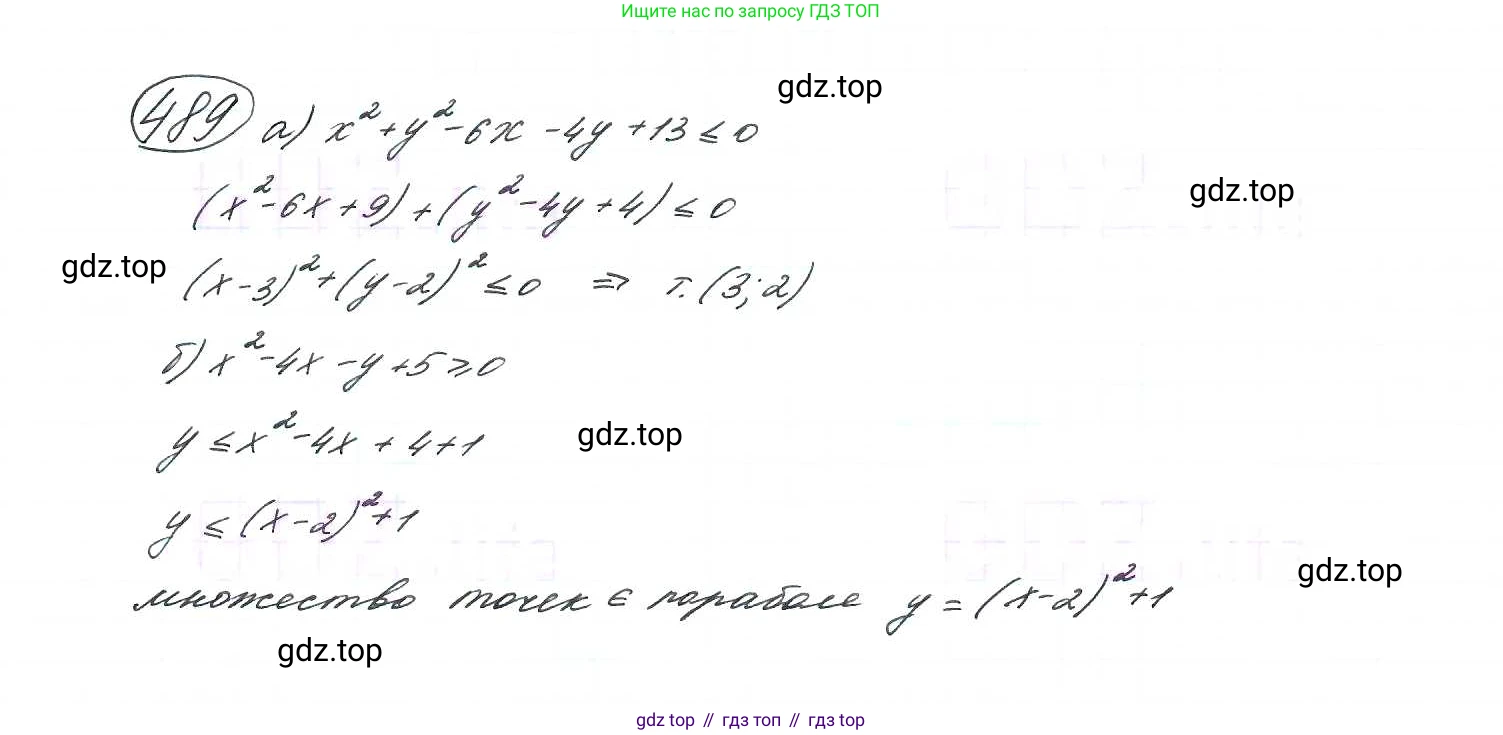 Ищите нас по запросу ГДЗ ТОП
gdz.top
489 а) x² + y² - 6x - 4y + 13 ≤ 0
(x² - 6x + 9) + (y² - 4y + 4) ≤ 0
gdz.top
gdz.top
(x - 3)² + (y - 2)² ≤ 0 ⇒ т. (3; 2)
б) x² - 4x - y + 5 ≥ 0
y ≤ x² - 4x + 4 + 1
gdz.top
y ≤ (x - 2)² + 1
gdz.top
множество точек ∈ параболе y = (x - 2)² + 1
gdz.top
gdz top // гдз топ // гдз top